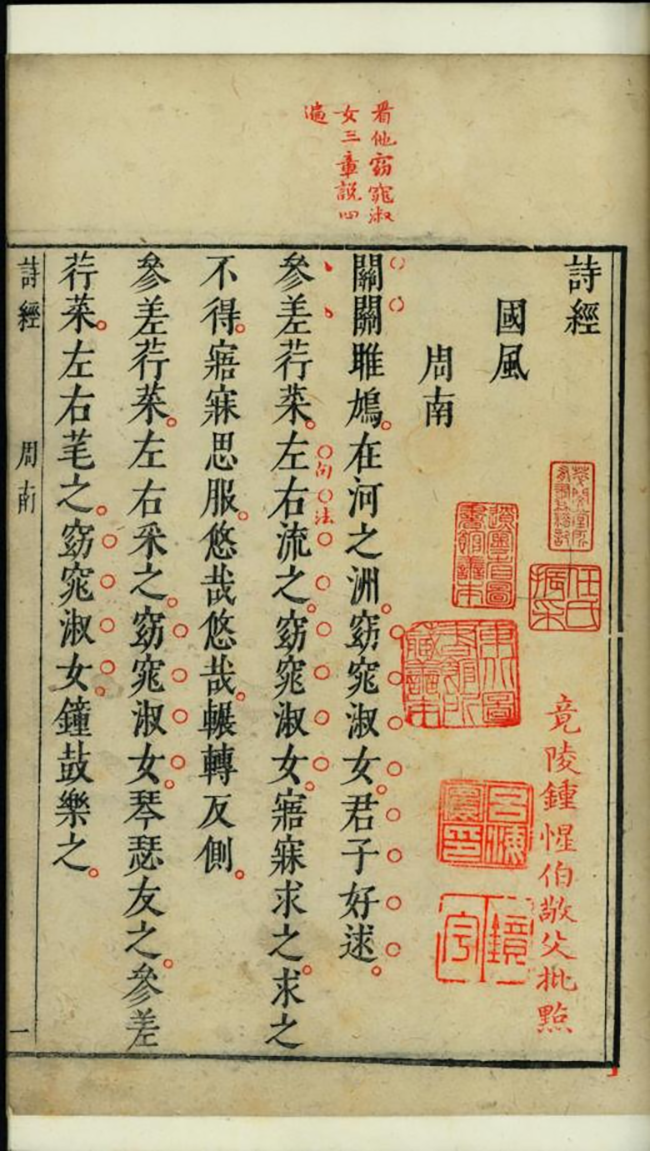 看他窈窕淑
女三章說四
遍
詩經
任氏
振采
竟陵鍾惺伯敬父批點
國風
東北圖
書館所
藏善本
周南
關關雎鳩。在河之洲。窈窕淑女。君子好逑。
句法
參差荇菜。左右流之。窈窕淑女。寤寐求之。求之
不得。寤寐思服。悠哉悠哉。輾轉反側。
參差荇菜。左右采之。窈窕淑女。琴瑟友之。參差
荇菜。左右芼之。窈窕淑女。鐘鼓樂之。
詩經 周南 一